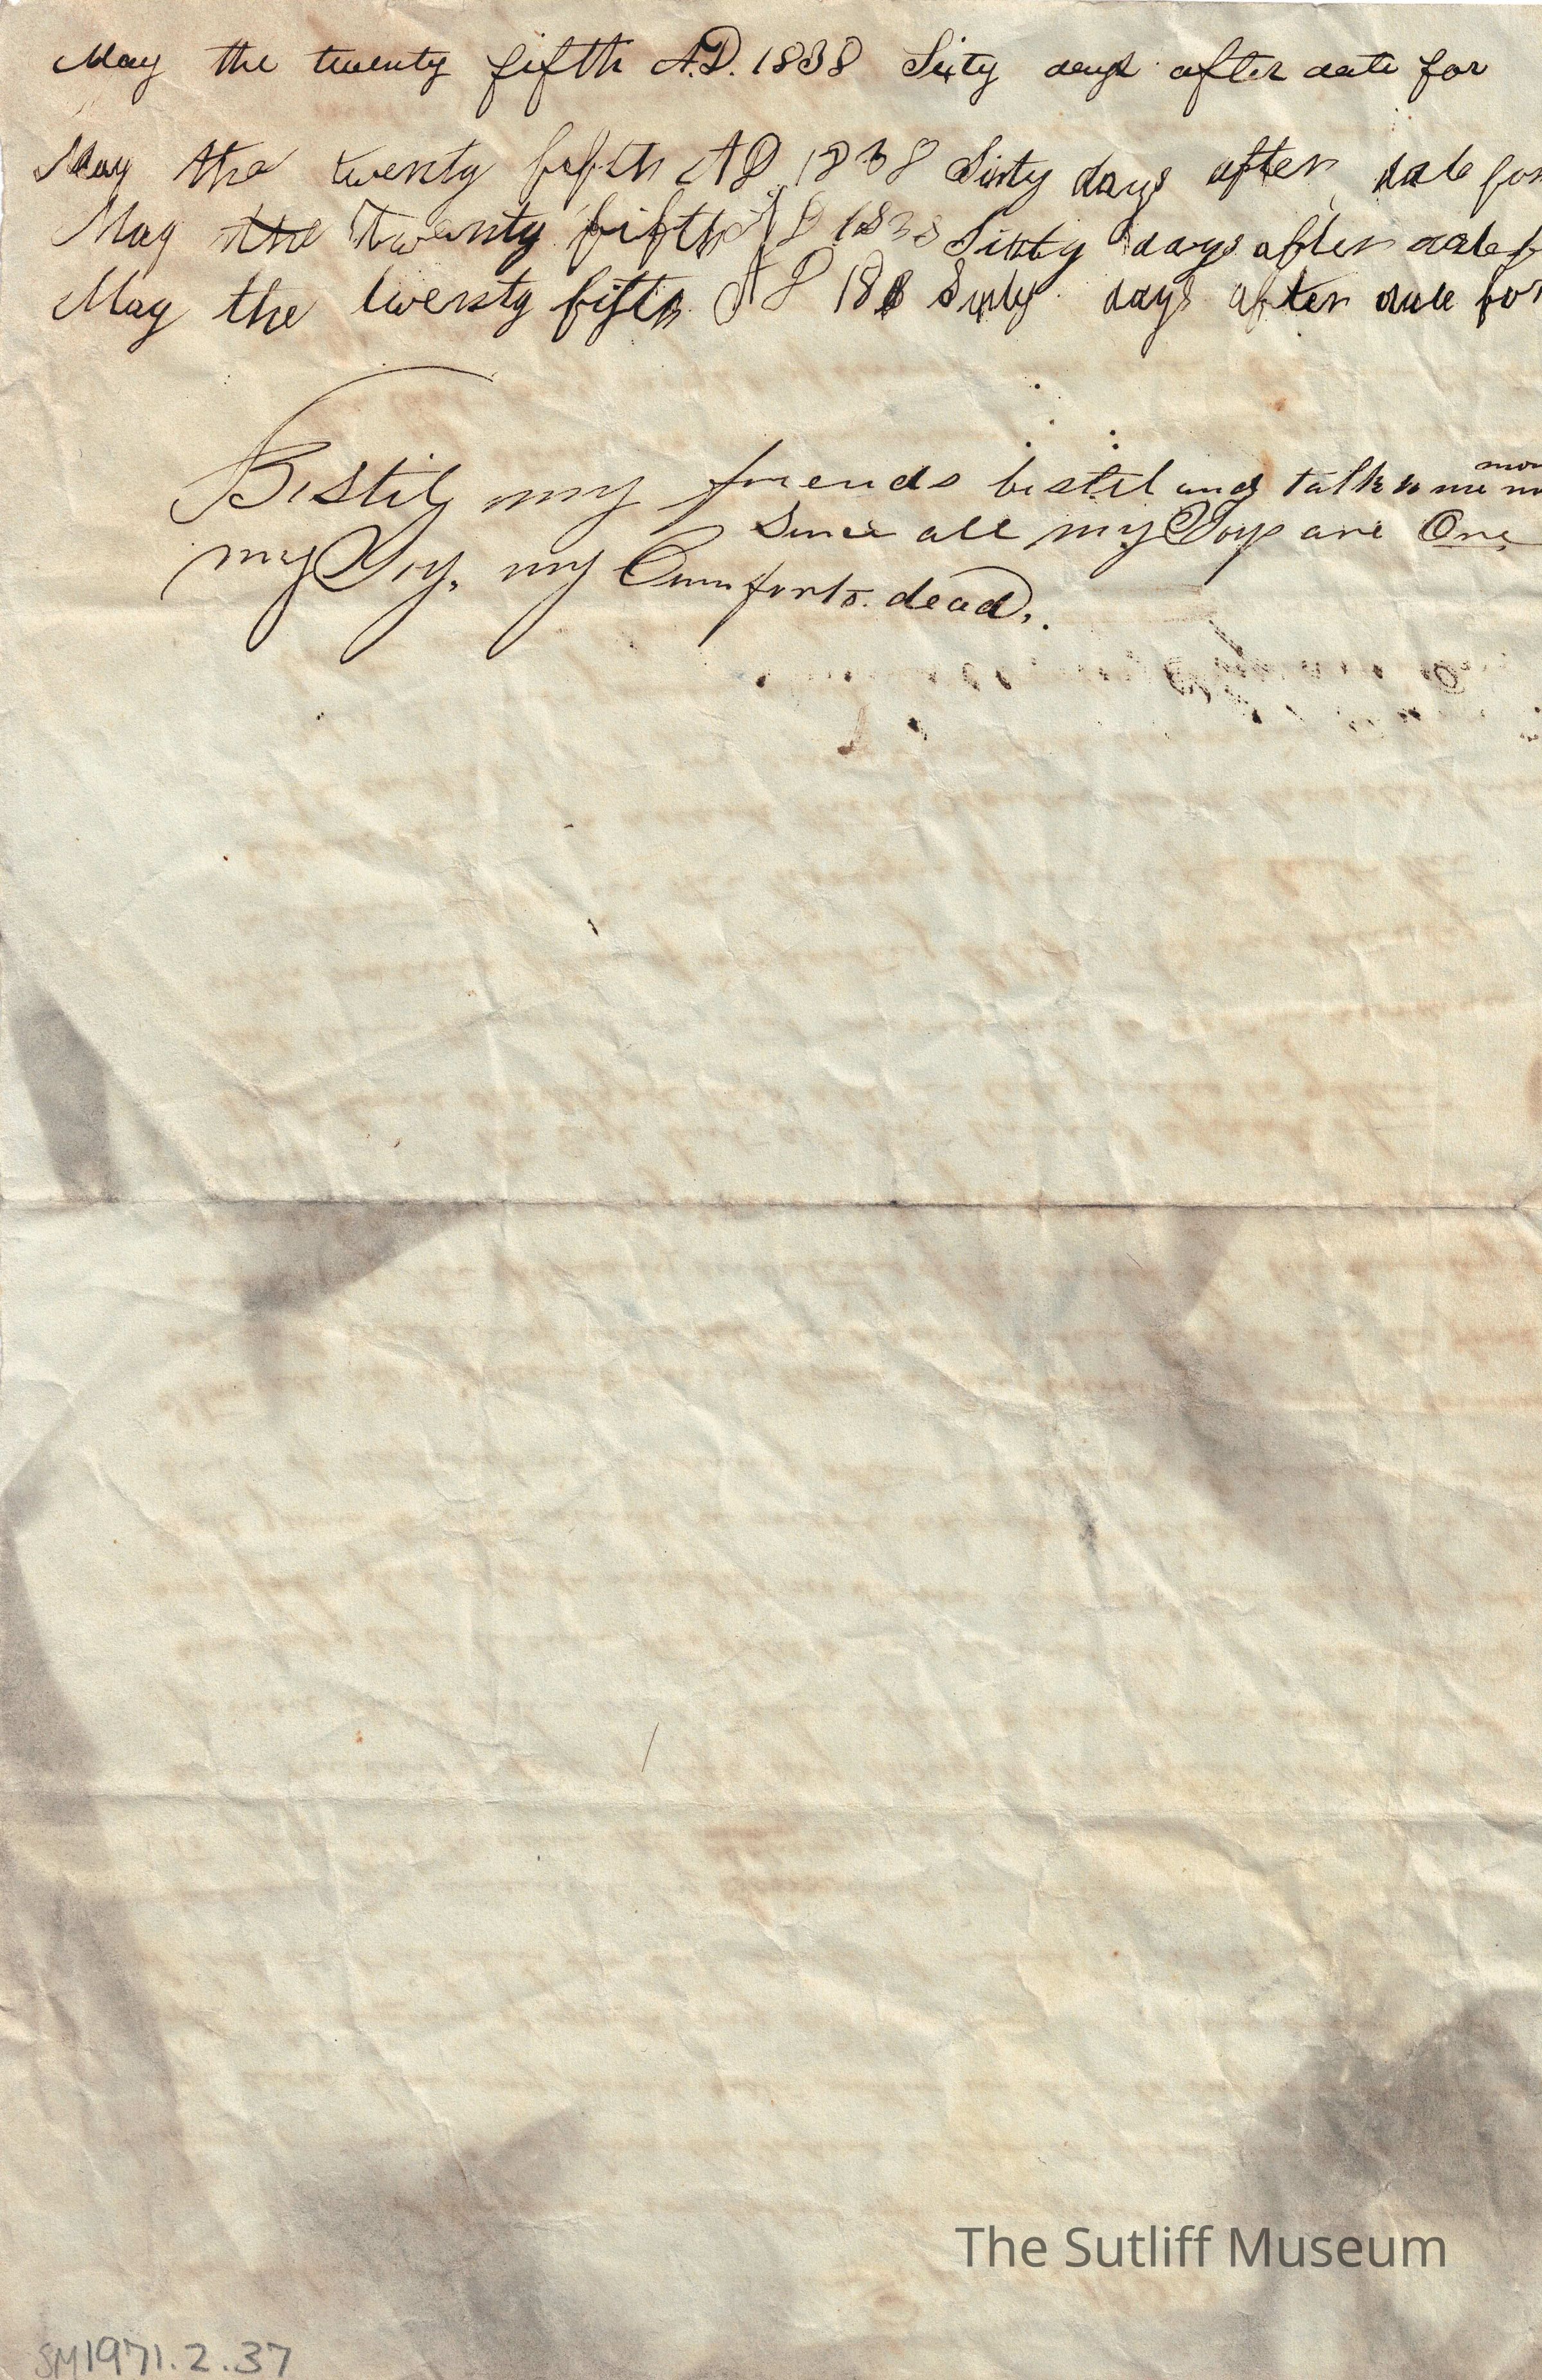 May the twenty fifth A.D. 1838 Sixty days after date for
May the twenty fifth A D 1838 Sixty days after date for
May the Twenty fifth A D 1838 Sixty days after date f
May the twenty fifth A D 18 days after date for
mor
Bistil my friends bistil and talk to me
Since all my Joys are One
my Joy, my Comforts dead.
The Sutliff Museum
SM1971.2.37